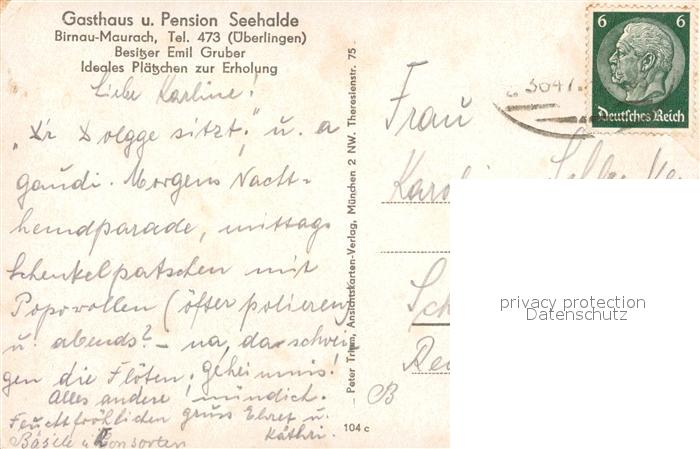 Gasthaus u. Pension Seehalde
Birnau-Maurach, Tel. 473 (Überlingen)
Besitzer Emil Gruber
Ideales Plätzchen zur Erholung
Liebe Karline!
„D'r Dolgge sitzt." u. a
gaudi. Morgens Nacht-
hemdparade, mittags
Schenkelpatschen mit
Popowollen (öfter polieren)
u. abends? – na, da schwei
gen die Flöten, geheimnis!
Alles andere mündich.
Feuchtfröhlichen gruss Ehref u.
Käthri.
Bäsele u Konsorten
Peter Trimm, Ansichtskarten-Verlag, München 2 NW. Theresienstr. 75.
104 c
6 6
Deutsches Reich
3647
Frau
B
privacy protection
Datenschutz